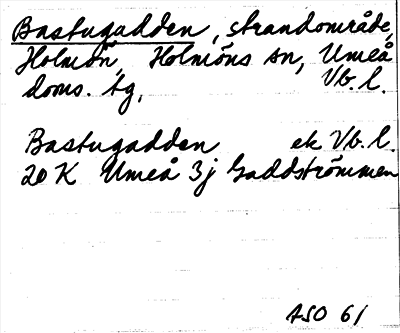 Bastugadden, strandområde,
Holmön, Holmöns sn, Umeå
doms. tg, Vb. l.
Bastugadden ek Vb. l.
20 K Umeå 3j Gaddströmmen
ASO 61